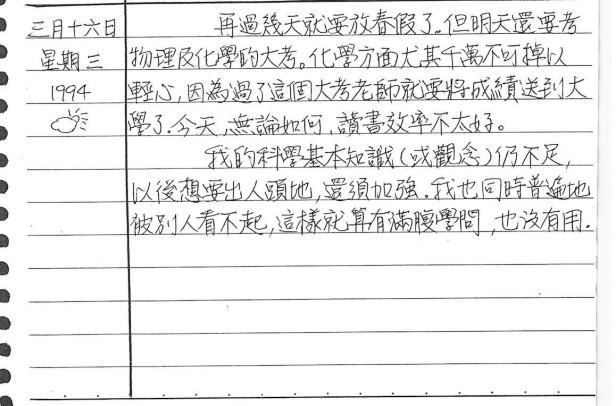 三月十六日
星期三
1994
再過幾天就要放春假了。但明天還要考
物理及化學的大考。化學方面尤其千萬不可掉以
輕心,因為過了這個大考老師就要將成績送到大
學了。今天,無論如何,讀書效率不太好。
我的科學基本知識(或觀念)仍不足,
以後想要出人頭地,還須加強。我也同時普遍地
被別人看不起,這樣就算有滿腹學問,也沒有用。